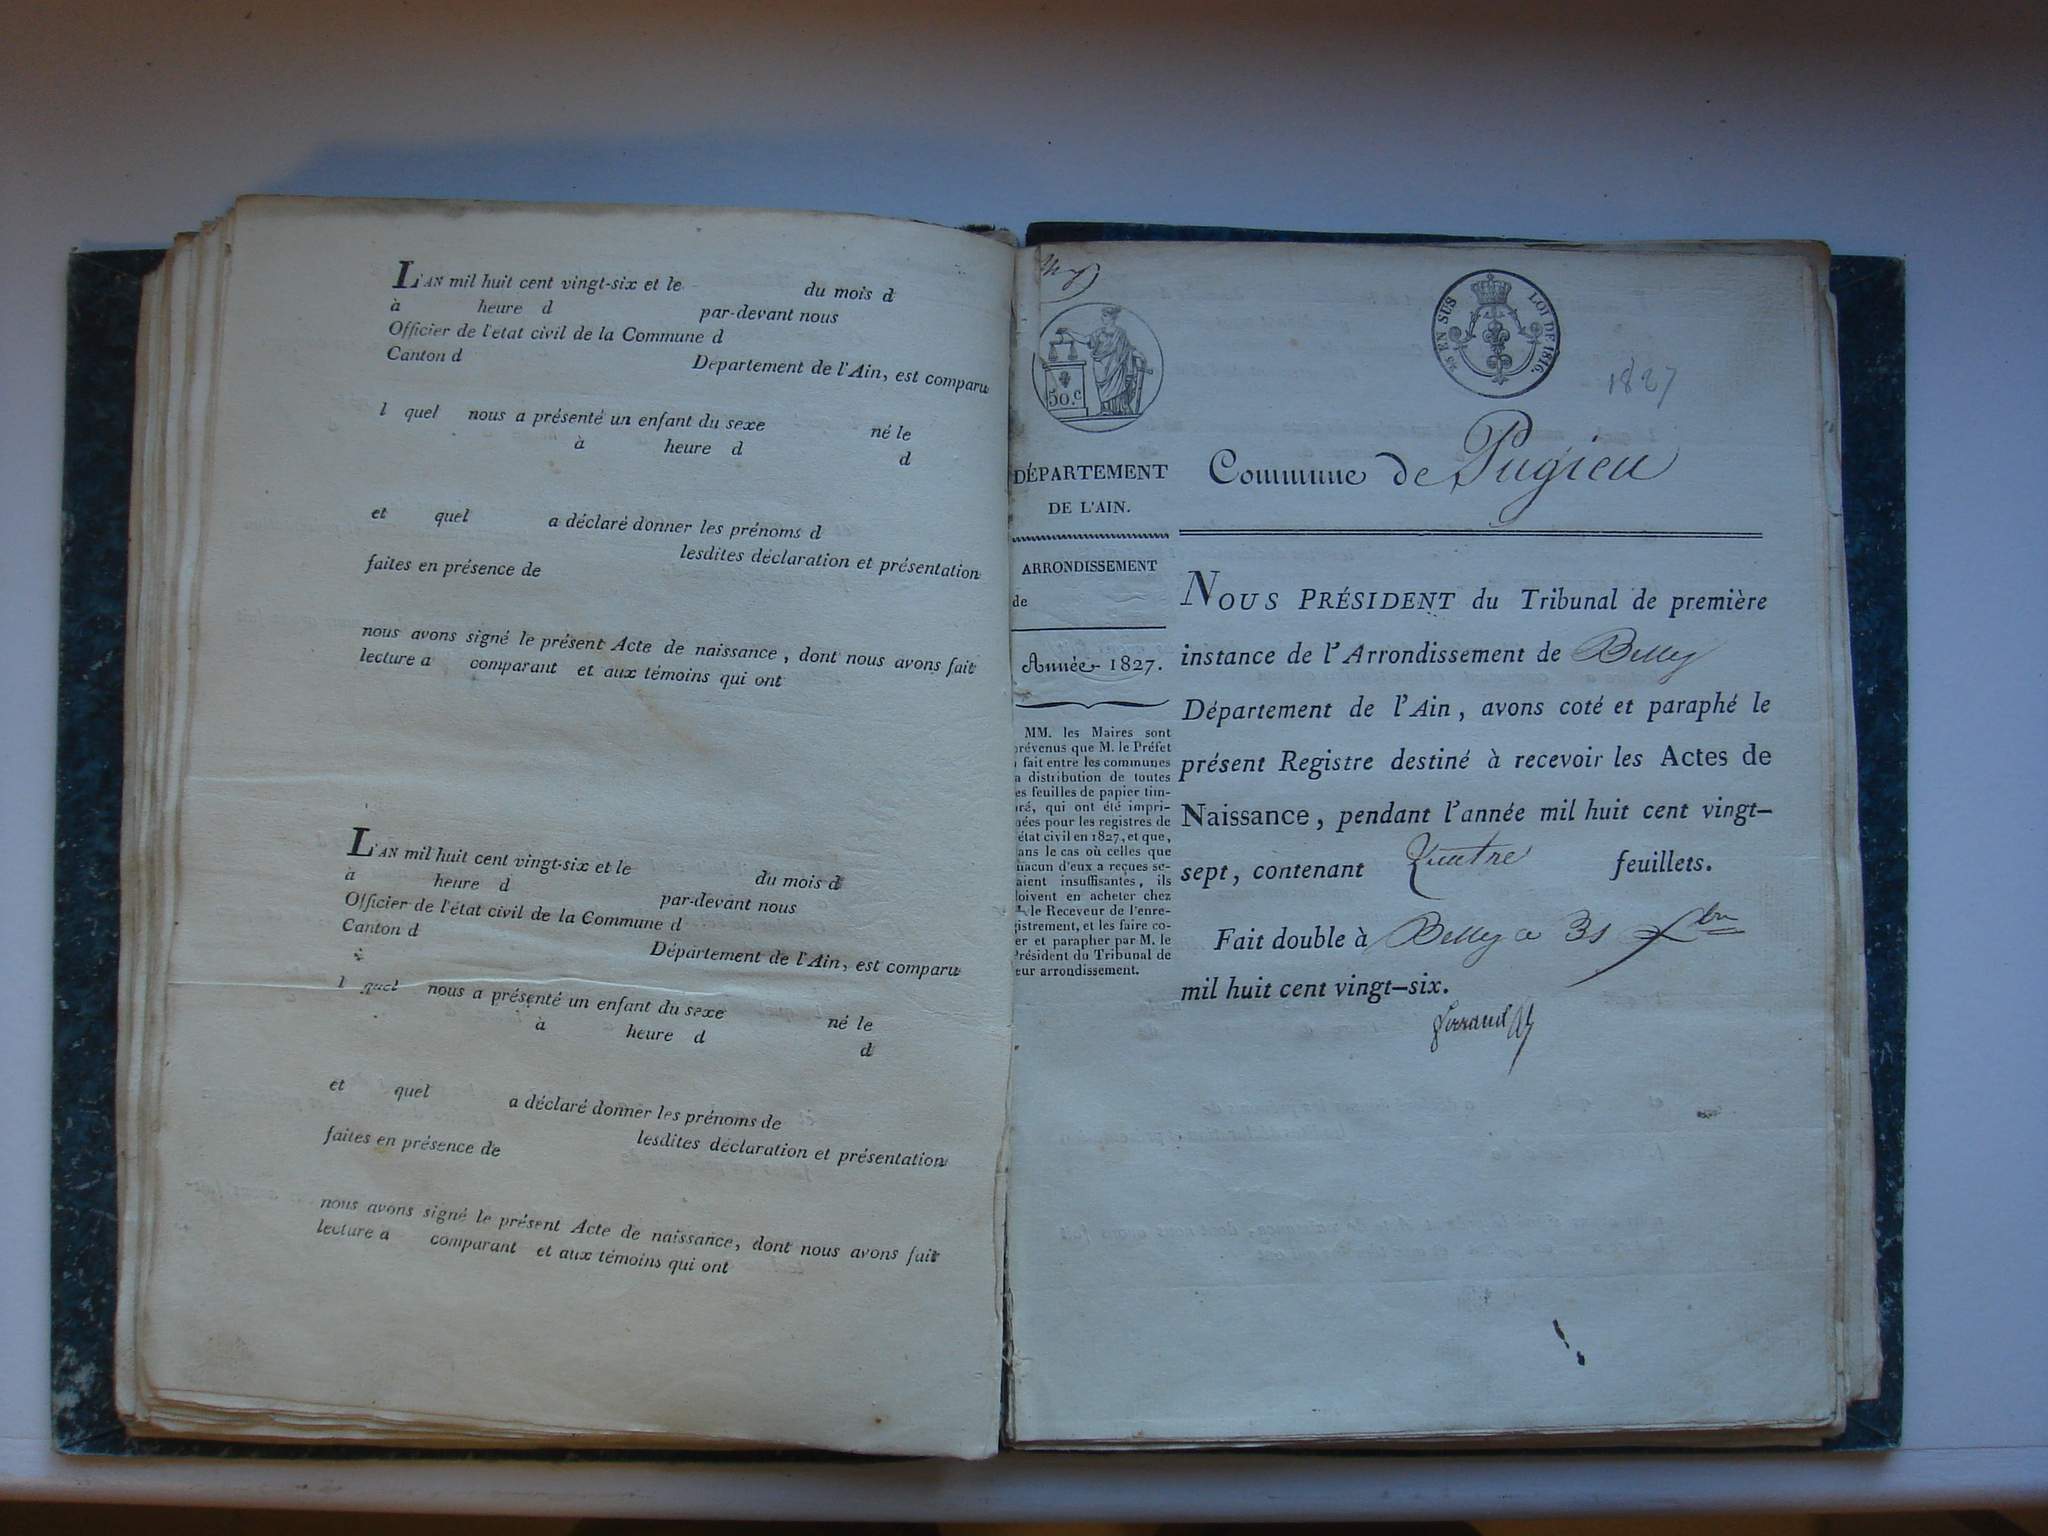 L'AN mil huit cent vingt-six et le du mois d
à heure d par-devant nous
Officier de l'état civil de la Commune d
Canton d Département de l'Ain, est comparu
l quel nous a présenté un enfant du sexe né le
à heure d d
et quel a déclaré donner les prénoms d
lesdites déclaration et présentation
faites en présence de
nous avons signé le présent Acte de naissance, dont nous avons fait
lecture a comparant et aux témoins qui ont
L'AN mil huit cent vingt-six et le du mois d
à heure d par-devant nous
Officier de l'état civil de la Commune d
Canton d Département de l'Ain, est comparu
l quel nous a présenté un enfant du sexe né le
à heure d d
et quel a déclaré donner les prénoms de
lesdites déclaration et présentation
faites en présence de
nous avons signé le présent Acte de naissance, dont nous avons fait
lecture a comparant et aux témoins qui ont
50.c
EN SUS LOI DE 1816.
1827
DÉPARTEMENT
DE L'AIN.
ARRONDISSEMENT
de
Année 1827.
MM. les Maires sont
prévenus que M. le Préfet
a fait entre les communes
la distribution de toutes
les feuilles de papier tim-
bré, qui ont été impri-
mées pour les registres de
l'état civil en 1827, et que,
dans le cas où celles que
chacun d'eux a reçues se-
raient insuffisantes, ils
doivent en acheter chez
M. le Receveur de l'enre-
gistrement, et les faire co-
ter et parapher par M. le
Président du Tribunal de
leur arrondissement.
Commune de Pugieu
NOUS PRÉSIDENT du Tribunal de première
instance de l'Arrondissement de Belley
Département de l'Ain, avons coté et paraphé le
présent Registre destiné à recevoir les Actes de
Naissance, pendant l'année mil huit cent vingt-
sept, contenant feuillets.
Fait double à Belley a 31 Xbre
mil huit cent vingt-six.